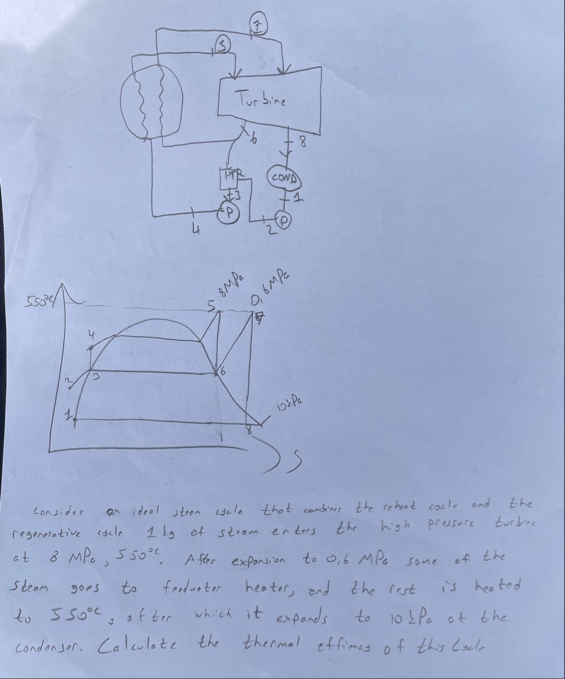 7
5
Turbine
6
8
HTR
COND
3
1
P
P
2
4
550°C
8MPa
0,6MPa
5
7
4
2
3
6
1
8
10kPa
S
Consider an ideal steam cycle that combines the reheat cycle and the
regenerative cycle 1 kg of steam enters the high pressure turbine
at 8 MPa, 550°C. After expansion to 0,6 MPa some of the
steam goes to feedwater heater, and the rest is heated
to 550°C, after which it expands to 10 kPa at the
condenser. Calculate the thermal efficiency of this Cycle